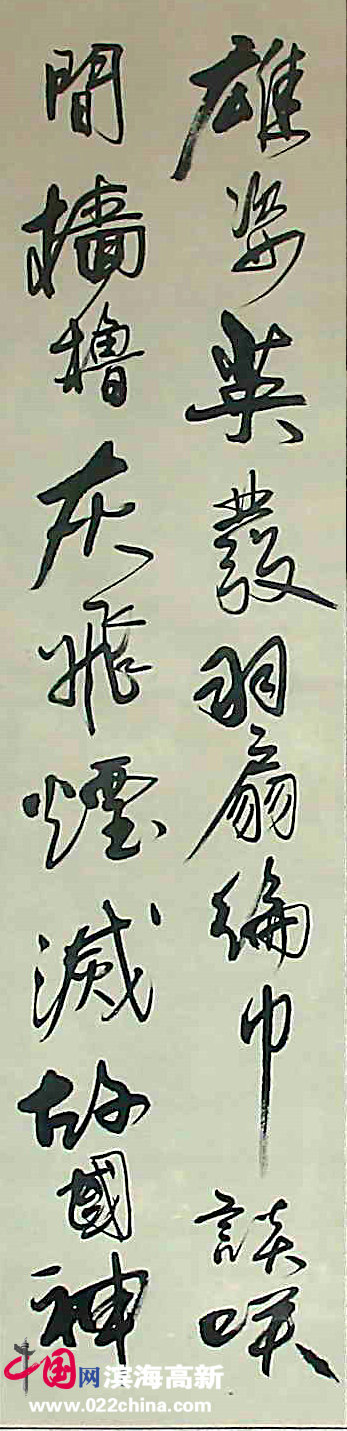 雄姿英發羽扇綸巾談咲
間檣櫓灰飛煙滅故國神
中国网滨海高新
www.022china.com